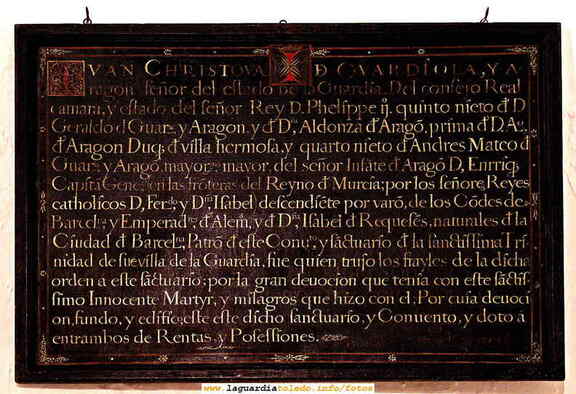 IVAN CHRISTOVAL D GVARDIOLA, Y A
ragon señor del estado de la Guardia, Del consejo Real
camara, y estado del señor Rey D. Phelippe ij. quinto nieto đ D
Geraldo đ Guar. y Aragon, y đ Dª, Aldonza đ Aragō, prima đ D.
đ Aragon Duq; đ villa hermosa, y quarto nieto đ Andres Mateo đ
Guar. y Aragō, mayor mayor, del señor Infāte đ Aragō D, Enrriq;
Capitā Gene. en las frōteras del Reyno đ Murcia; por los señores Reyes
catholicos D, Fer. y Dª, Isabel descendiēte por varō, de los Cōdes de
Barcel. y Emperad. đ Alem, y đ Dª, Isabel đ Requesēs, naturales đ la
Ciudad đ Barcel. Patrō đ este Conu. y sāctuario đ la sanctissima Tri
nidad de su villa de la Guardia, fue quien trujo los frayles de la dicha
orden a este sāctuario: por la gran deuocion que tenia con este sāctis
simo Innocente Martyr, y milagros que hizo con el. Por cuia deuoci
on, fundo, y edifico, este dicho sanctuario, y Conuento, y doto à
entrambos de Rentas, y Possessiones.
www.laguardiatoledo.info/fotos